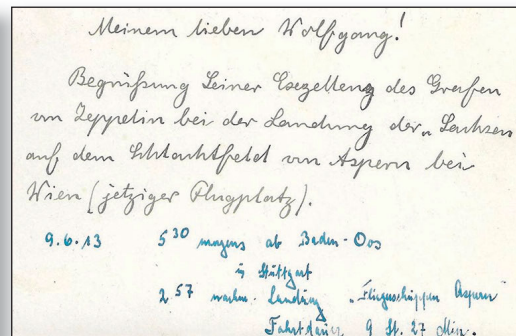 Meinem lieben Wolfgang!
Begrüßung Seiner Exzellenz des Grafen
von Zeppelin bei der Landung der „Sachsen
auf dem Schlachtfeld von Aspern bei
Wien (jetziger Flugplatz).
9.6.13 5 30 morgens ab Baden-Oos
Stuttgart
2 57 nachm. Landung Aspern
Fahrtdauer 9 St. 27 Min.